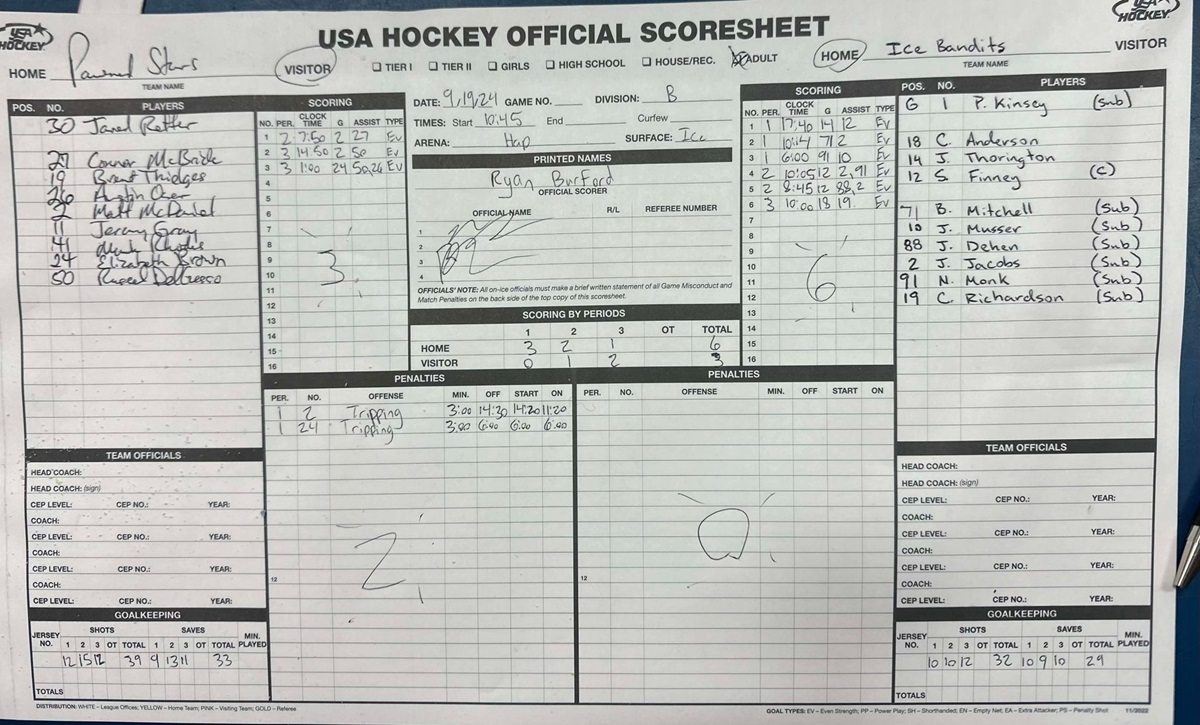 USA HOCKEY
USA HOCKEY OFFICIAL SCORESHEET
USA HOCKEY
HOME Powered Stars VISITOR
TEAM NAME
☐ TIER I ☐ TIER II ☐ GIRLS ☐ HIGH SCHOOL ☐ HOUSE/REC. ☒ ADULT
HOME Ice Bandits VISITOR
TEAM NAME
POS. NO. PLAYERS
30 Jared Retter
27 Connor McBride
19 Brent Thidges
26 Austin Cher
2 Matt McDaniel
11 Jeremy Gray
41 Mark Rhodis
24 Elizabeth Brown
50 Russel DelGrosso
SCORING
NO. PER. CLOCK TIME G ASSIST TYPE
1 2 7:50 2 27 Ev
2 3 14:50 2 50 Ev
3 3 1:00 24 50,26 EV
4
5
6
7
8
9
10
11
12
13
14
15
16
3
DATE: 9/19/24 GAME NO. DIVISION: B
TIMES: Start 10:45 End Curfew
ARENA: Hap SURFACE: Ice
PRINTED NAMES
Ryan Burford
OFFICIAL SCORER
OFFICIAL NAME R/L REFEREE NUMBER
1
2
3
4
OFFICIALS' NOTE: All on-ice officials must make a brief written statement of all Game Misconduct and
Match Penalties on the back side of the top copy of this scoresheet.
SCORING BY PERIODS
1 2 3 OT TOTAL
HOME 3 2 1 6
VISITOR 0 1 2 3
SCORING
NO. PER. CLOCK TIME G ASSIST TYPE
1 1 17:40 14 12 Ev
2 1 10:14 71 2 Ev
3 1 6:00 91 10 Ev
4 2 10:05 12 2,91 Ev
5 2 8:45 12 88,2 Ev
6 3 10:00 18 19 Ev
7
8
9
10
11
12
13
14
15
16
6
POS. NO. PLAYERS
G 1 P. Kinsey (Sub)
18 C. Anderson
14 J. Thorington
12 S. Finney (C)
71 B. Mitchell (Sub)
10 J. Musser (Sub)
88 J. Dehen (Sub)
2 J. Jacobs (Sub)
91 N. Monk (Sub)
19 C. Richardson (Sub)
PENALTIES
PER. NO. OFFENSE MIN. OFF START ON
1 2 Tripping 3:00 14:20 14:20 11:20
1 24 Tripping 3:00 6:00 6:00 6:00
2
12
PENALTIES
PER. NO. OFFENSE MIN. OFF START ON
0
12
TEAM OFFICIALS
HEAD COACH:
HEAD COACH: (sign)
CEP LEVEL: CEP NO.: YEAR:
COACH:
CEP LEVEL: CEP NO.: YEAR:
COACH:
CEP LEVEL: CEP NO.: YEAR:
COACH:
CEP LEVEL: CEP NO.: YEAR:
GOALKEEPING
SHOTS SAVES
JERSEY NO. 1 2 3 OT TOTAL 1 2 3 OT TOTAL MIN. PLAYED
12 15 12 39 9 13 11 33
TOTALS
TEAM OFFICIALS
HEAD COACH:
HEAD COACH: (sign)
CEP LEVEL: CEP NO.: YEAR:
COACH:
CEP LEVEL: CEP NO.: YEAR:
COACH:
CEP LEVEL: CEP NO.: YEAR:
COACH:
CEP LEVEL: CEP NO.: YEAR:
GOALKEEPING
SHOTS SAVES
JERSEY NO. 1 2 3 OT TOTAL 1 2 3 OT TOTAL MIN. PLAYED
10 10 12 32 10 9 10 29
TOTALS
DISTRIBUTION: WHITE – League Offices; YELLOW – Home Team; PINK – Visiting Team; GOLD – Referee
GOAL TYPES: EV – Even Strength; PP – Power Play; SH – Shorthanded; EN – Empty Net; EA – Extra Attacker; PS – Penalty Shot 11/2022